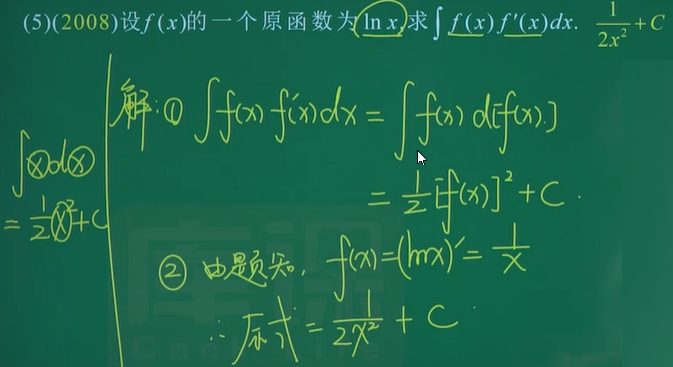 (5)(2008)设f(x)的一个原函数为ln x,求∫f(x)f'(x)dx. 1/(2x²)+C
解:① ∫f(x)f'(x)dx = ∫f(x)d[f(x)]
= 1/2[f(x)]²+C.
∫xdx
= 1/2x²+C
② 由题知, f(x)=(lnx)'=1/x
∴原式=1/(2x²)+C